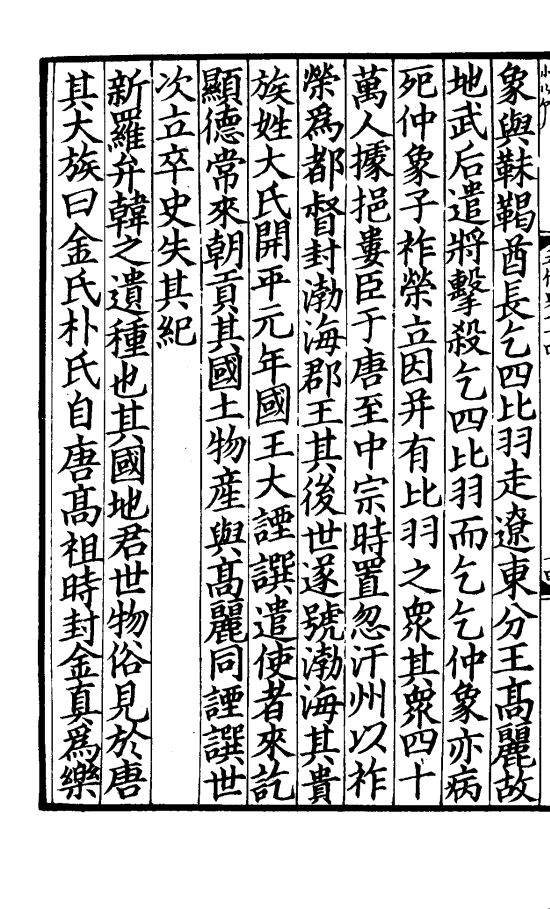 象與靺鞨酋長乞四比羽走遼東分王髙麗故
地武后遣將擊殺乞四比羽而乞乞仲象亦病
死仲象子祚榮立因并有比羽之衆其衆四十
萬人據挹婁臣于唐至中宗時置忽汗州以祚
榮爲都督封渤海郡王其後世遂號渤海其貴
族姓大氏開平元年國王大諲譔遣使者來訖
顯德常來朝貢其國土物產與髙麗同諲譔世
次立卒史失其紀
新羅弁韓之遺種也其國地君世物俗見於唐
其大族曰金氏朴氏自唐髙祖時封金真爲樂